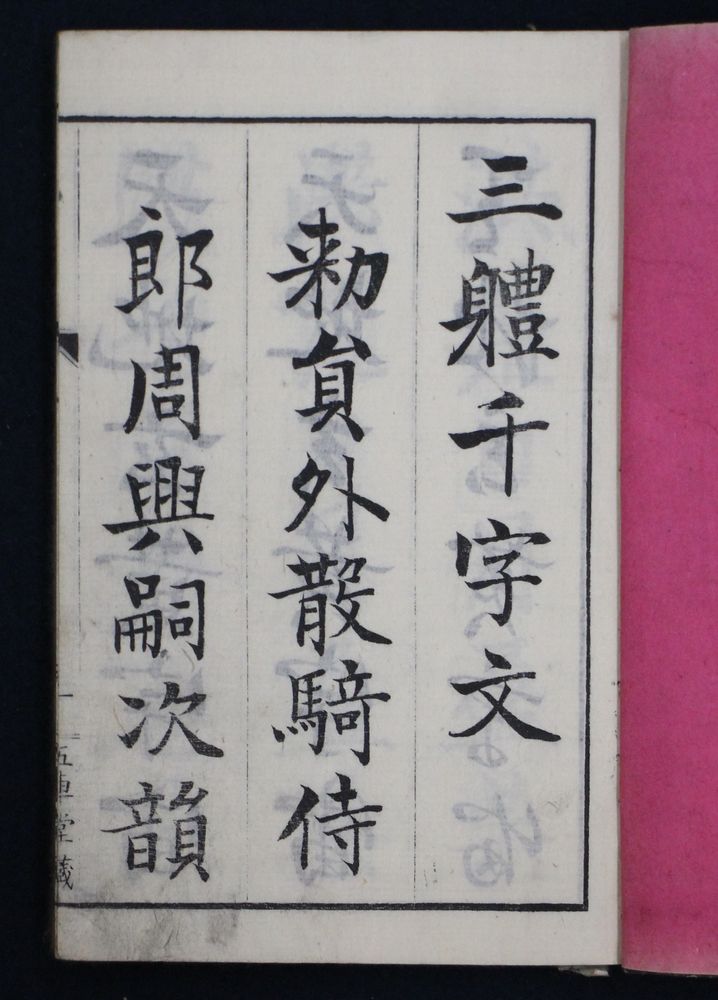 三體千字文
勑貟外散騎侍
郎周興嗣次韻
五車堂藏